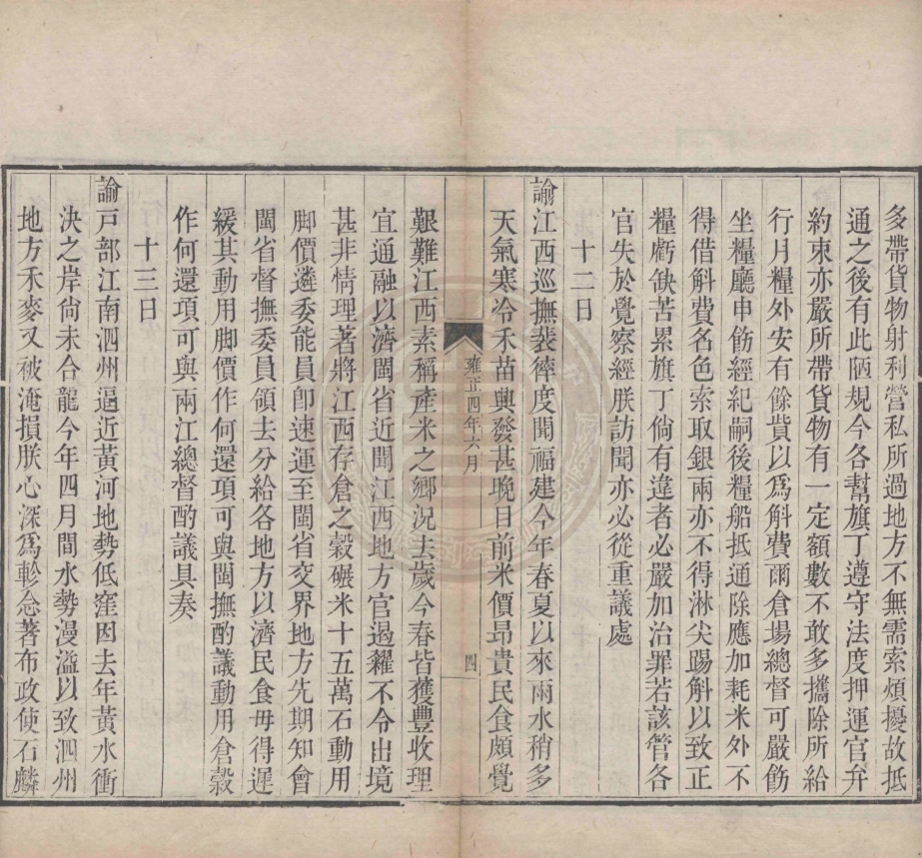 多帶貨物射利營私所過地方不無需索煩擾故抵
通之後有此陋規今各幫旗丁遵守法度押運官弁
約束亦嚴所帶貨物有一定額數不敢多攜除所給
行月糧外安有餘貲以爲斛費爾倉場總督可嚴飭
坐糧廳申飭經紀嗣後糧船抵通除應加耗米外不
得借斛費名色索取銀兩亦不得淋尖踢斛以致正
糧虧缺苦累旗丁倘有違者必嚴加治罪若該管各
官失於覺察經朕訪聞亦必從重議處
十二日
諭江西巡撫裴𢕑度聞福建今年春夏以來雨水稍多
天氣寒冷禾苗興發甚晚目前米價昻貴民食頗覺
雍正四年六月
四
艱難江西素稱產米之鄉況去歲今春皆獲豐收理
宜通融以濟閩省近聞江西地方官遏糴不令出境
甚非情理著將江西存倉之穀碾米十五萬石動用
脚價遴委能員卽速運至閩省交界地方先期知會
閩省督撫委員領去分給各地方以濟民食毋得遲
緩其動用脚價作何還項可與閩撫酌議動用倉穀
作何還項可與兩江總督酌議具奏
十三日
諭戸部江南泗州逼近黃河地勢低窪因去年黃水衝
決之岸尙未合龍今年四月間水勢漫溢以致泗州
地方禾麥又被淹損朕心深爲軫念著布政使石麟